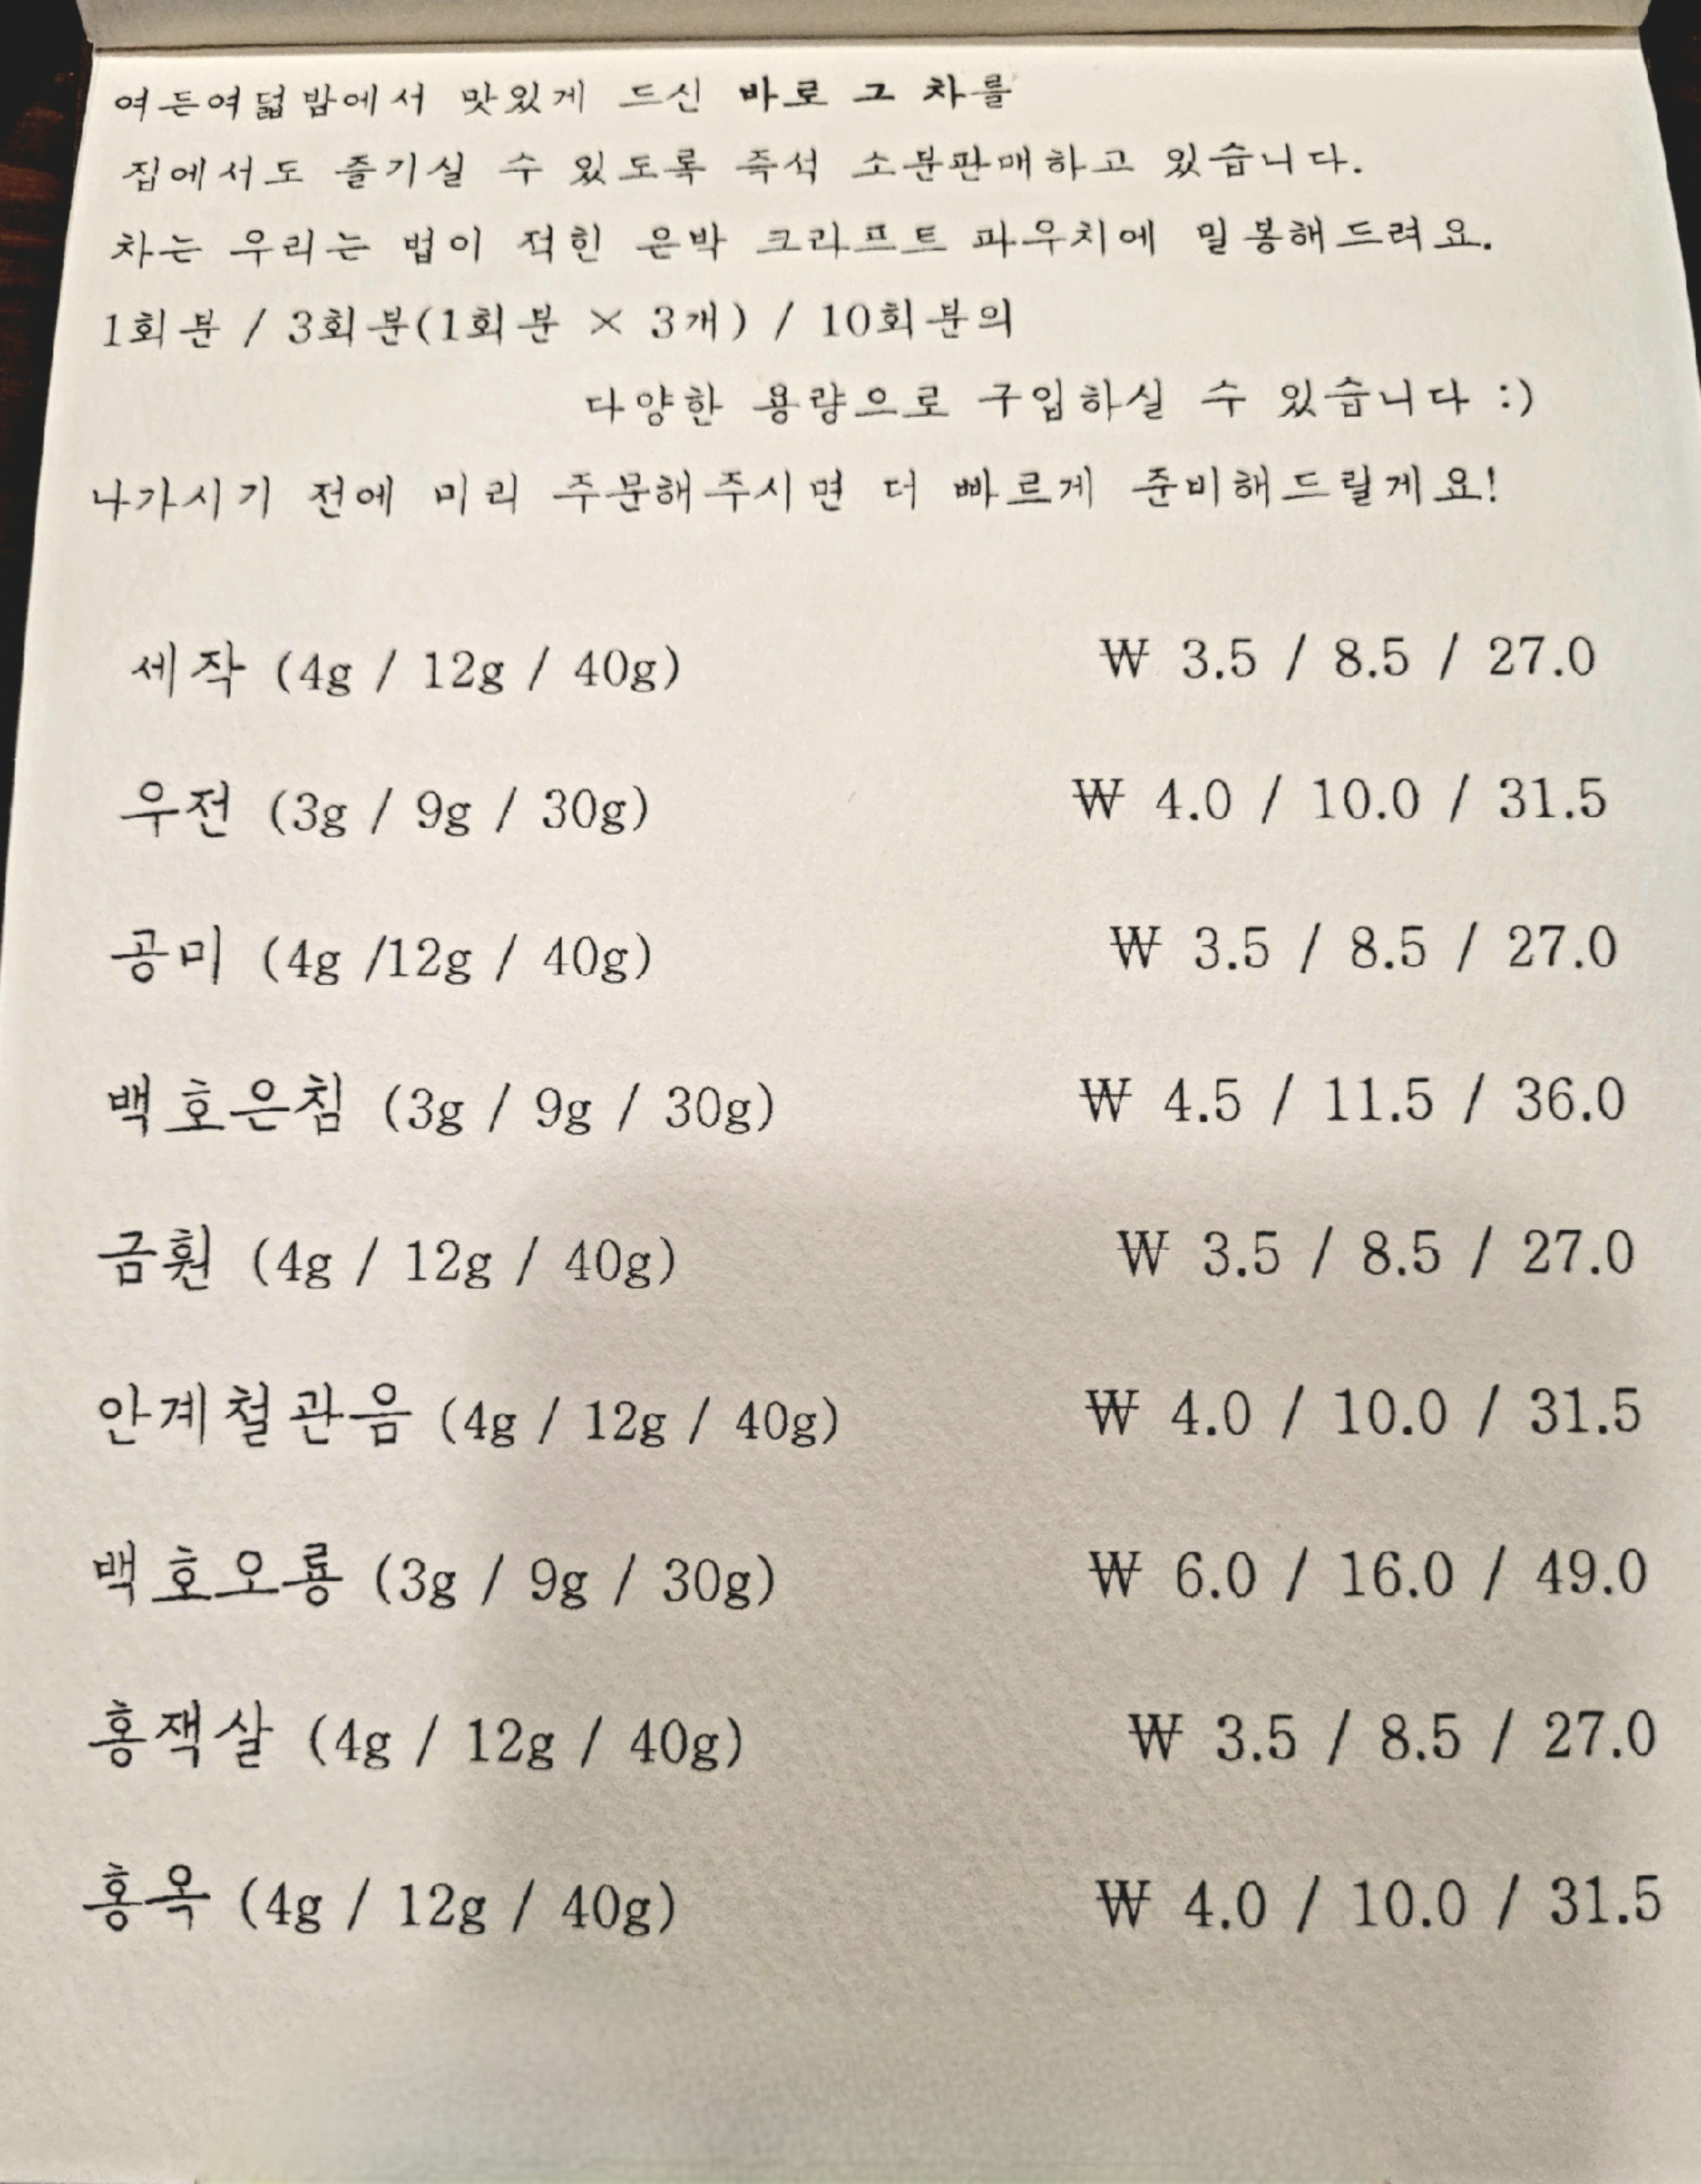 여든여덟밤에서 맛있게 드신 바로 그 차를
집에서도 즐기실 수 있도록 즉석 소분판매하고 있습니다.
차는 우리는 법이 적힌 은박 크라프트 파우치에 밀봉해드려요.
1회분 / 3회분(1회분 × 3개) / 10회분의
다양한 용량으로 구입하실 수 있습니다 :)
나가시기 전에 미리 주문해주시면 더 빠르게 준비해드릴게요!
세작 (4g / 12g / 40g) ₩ 3.5 / 8.5 / 27.0
우전 (3g / 9g / 30g) ₩ 4.0 / 10.0 / 31.5
공미 (4g /12g / 40g) ₩ 3.5 / 8.5 / 27.0
백호은침 (3g / 9g / 30g) ₩ 4.5 / 11.5 / 36.0
금훤 (4g / 12g / 40g) ₩ 3.5 / 8.5 / 27.0
안계철관음 (4g / 12g / 40g) ₩ 4.0 / 10.0 / 31.5
백호오룡 (3g / 9g / 30g) ₩ 6.0 / 16.0 / 49.0
홍잭살 (4g / 12g / 40g) ₩ 3.5 / 8.5 / 27.0
홍옥 (4g / 12g / 40g) ₩ 4.0 / 10.0 / 31.5